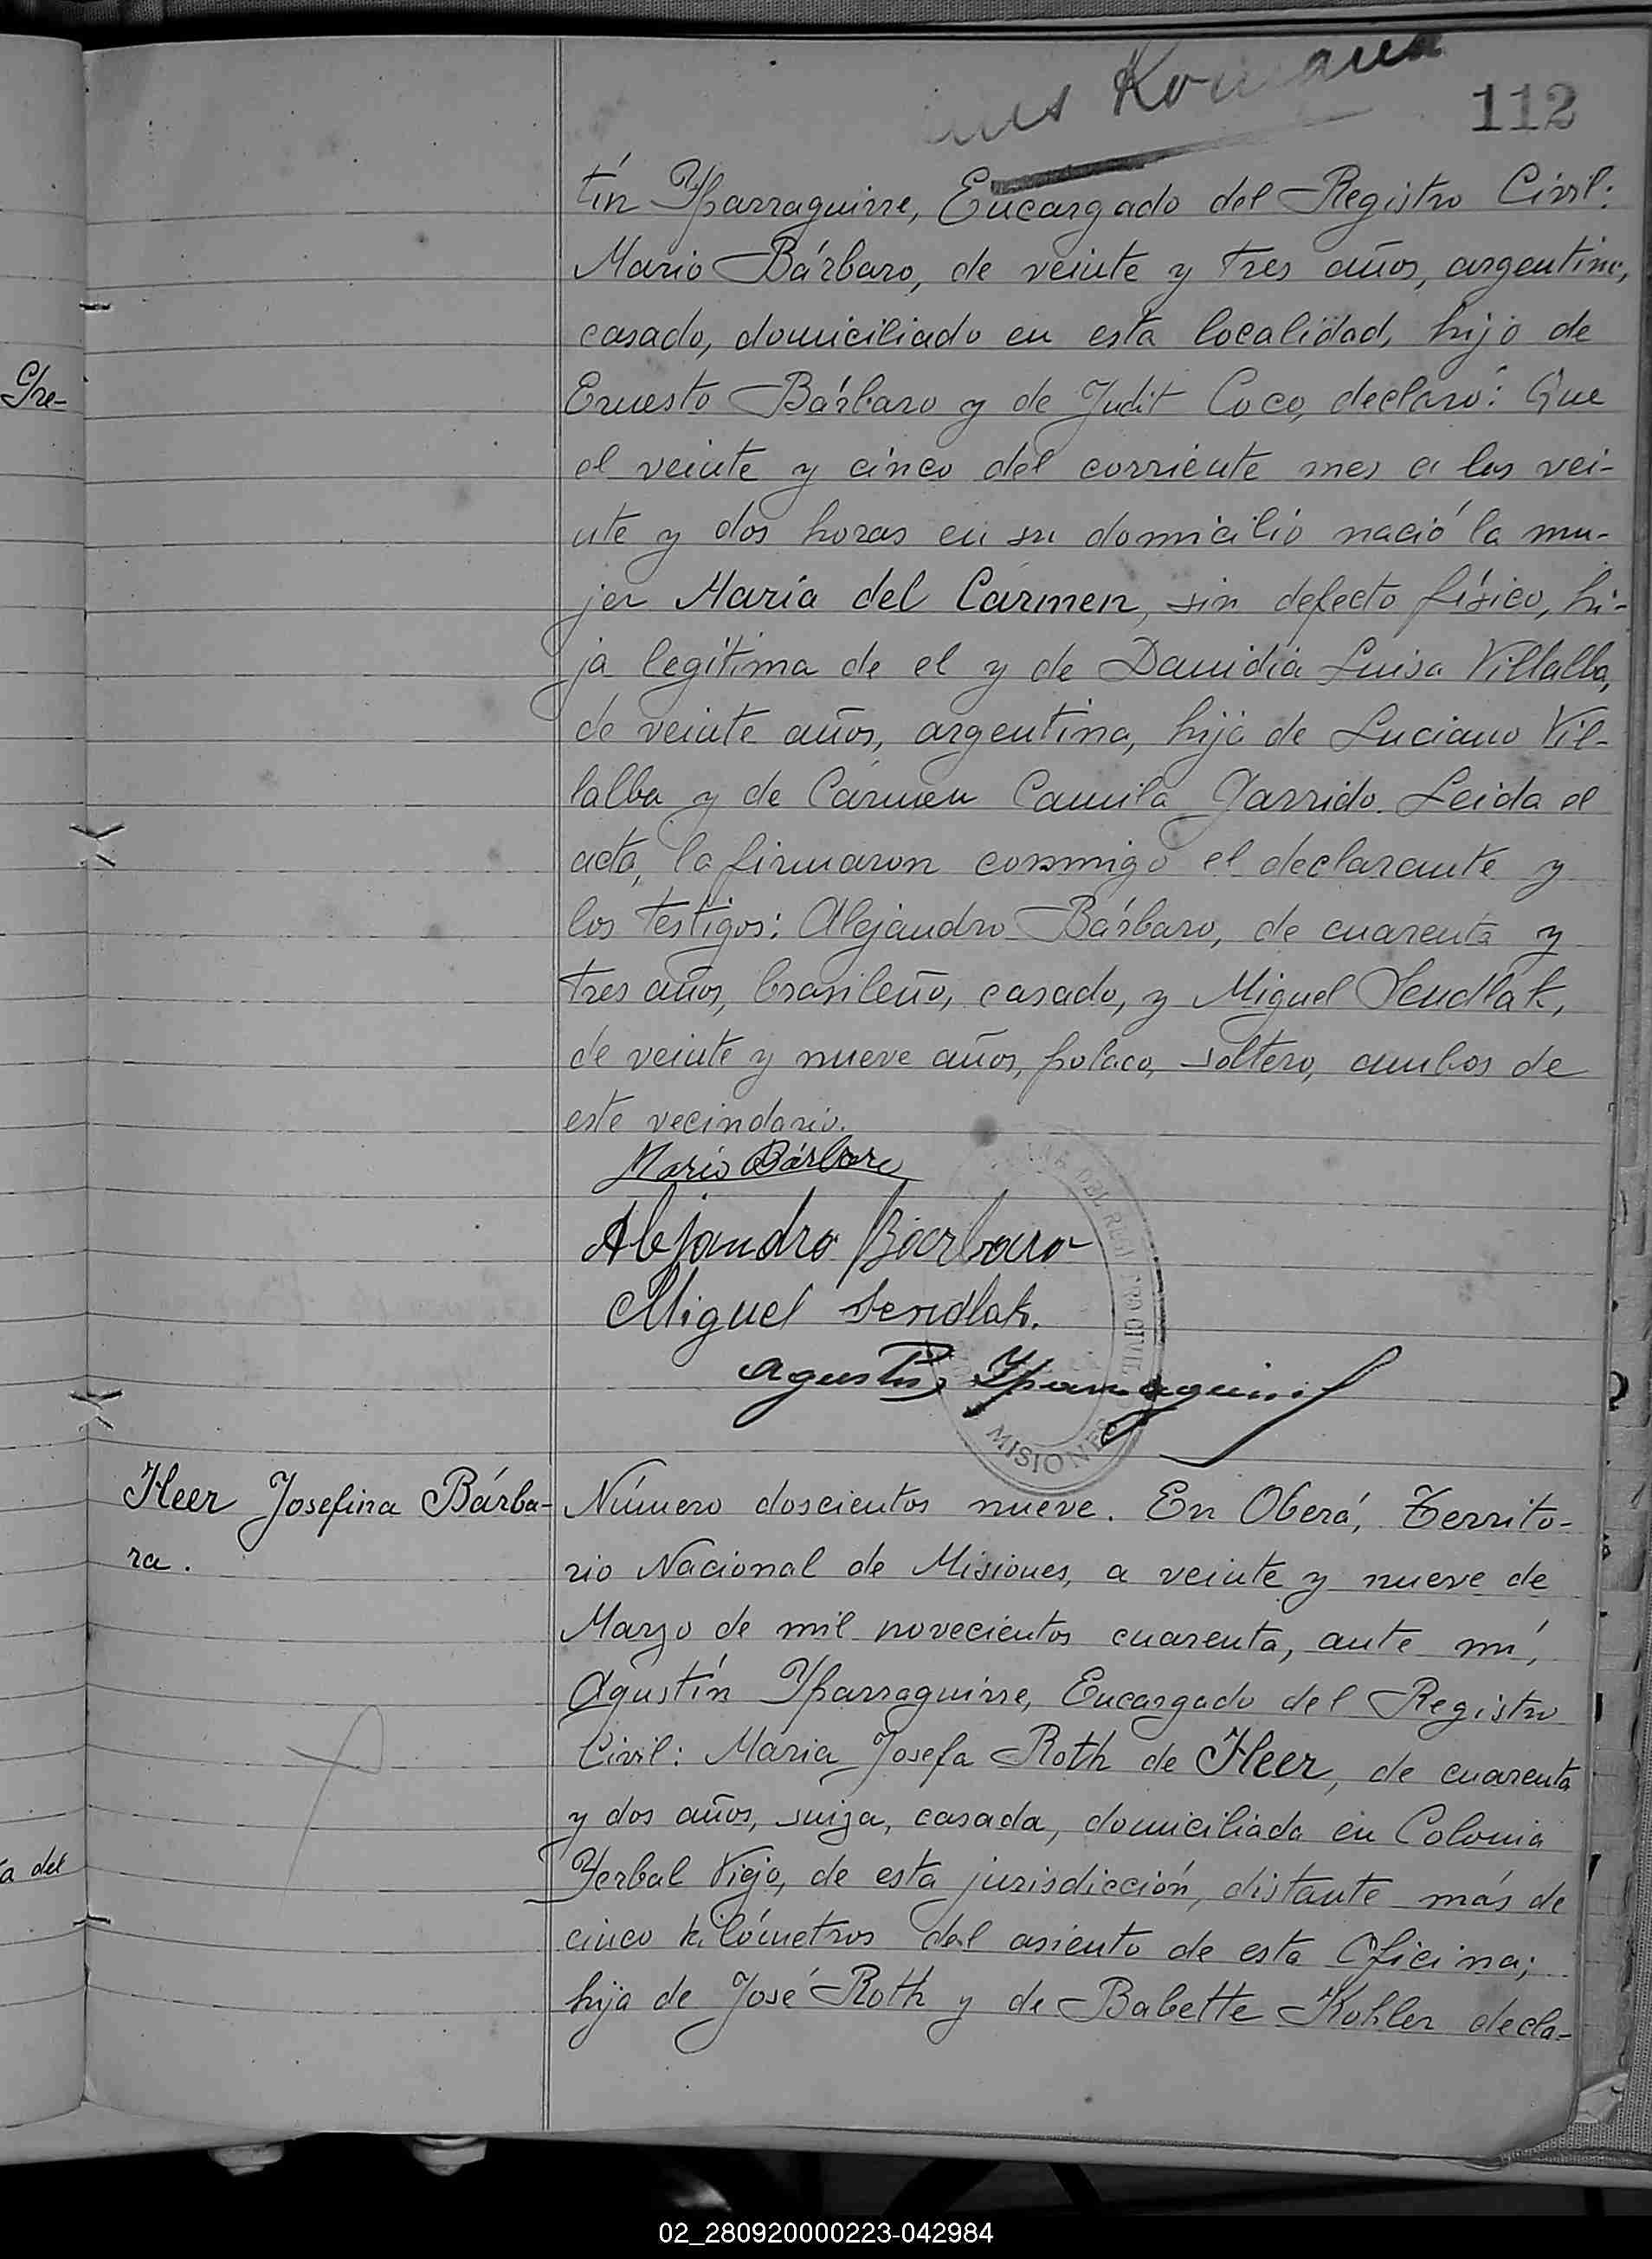 112
tín Yparraguirre, Encargado del Registro Civil:
Mario Bárbaro, de veinte y tres años, argentino,
casado, domiciliado en esta localidad, hijo de
Ernesto Bárbaro y de Judit Coco, declaró: Que
el veinte y cinco del corriente mes a las vei-
nte y dos horas en su domicilio nació la mu-
jer María del Cármen, sin defecto físico, hi-
ja legítima de el y de Luisa Villalba,
de veinte años, argentina, hija de Luciano Vil-
lalba y de Cármen Camila Garrido. Leida el
acta, la firmaron conmigo el declarante y
los testigos: Alejandro Bárbaro, de cuarenta y
tres años, brasileño, casado, y Miguel Sendlak,
de veinte y nueve años, polaco, soltero, ambos de
este vecindario.
Mario Bárbaro
Alejandro Barbaro
Miguel Sendlak.
Agustín Yparraguirre
MISIONES
Heer Josefina Bárba-
ra.
Número doscientos nueve. En Oberá, Territo-
rio Nacional de Misiones, a veinte y nueve de
Marzo de mil novecientos cuarenta, ante mí,
Agustín Yparraguirre, Encargado del Registro
Civil: Maria Josefa Roth de Heer, de cuarenta
y dos años, suiza, casada, domiciliada en Colonia
Yerbal Viejo, de esta jurisdicción, distante más de
cinco kilómetros del asiento de esta Oficina;
hija de José Roth y de Babette Kohler decla-
a del
02_280920000223-042984